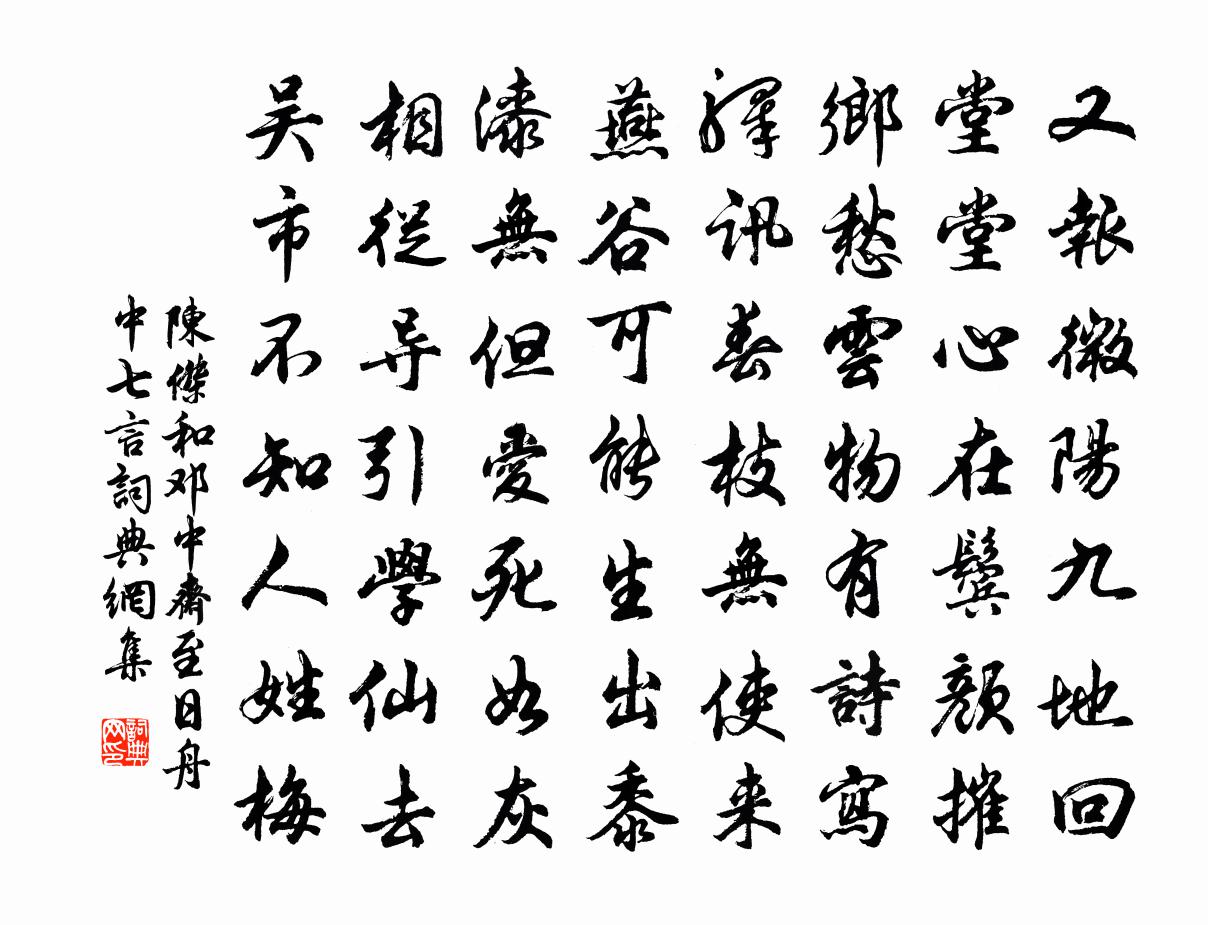 又報微陽九地回
堂堂心在鬢顏摧
鄉愁雲物有詩寫
驛訊春枝無使来
燕谷可能生出黍
漆無但愛死如灰
相從导引學仙去
吴市不知人姓梅
陳傑和邓中齋至日舟
中七言詞典網集
詞典网印